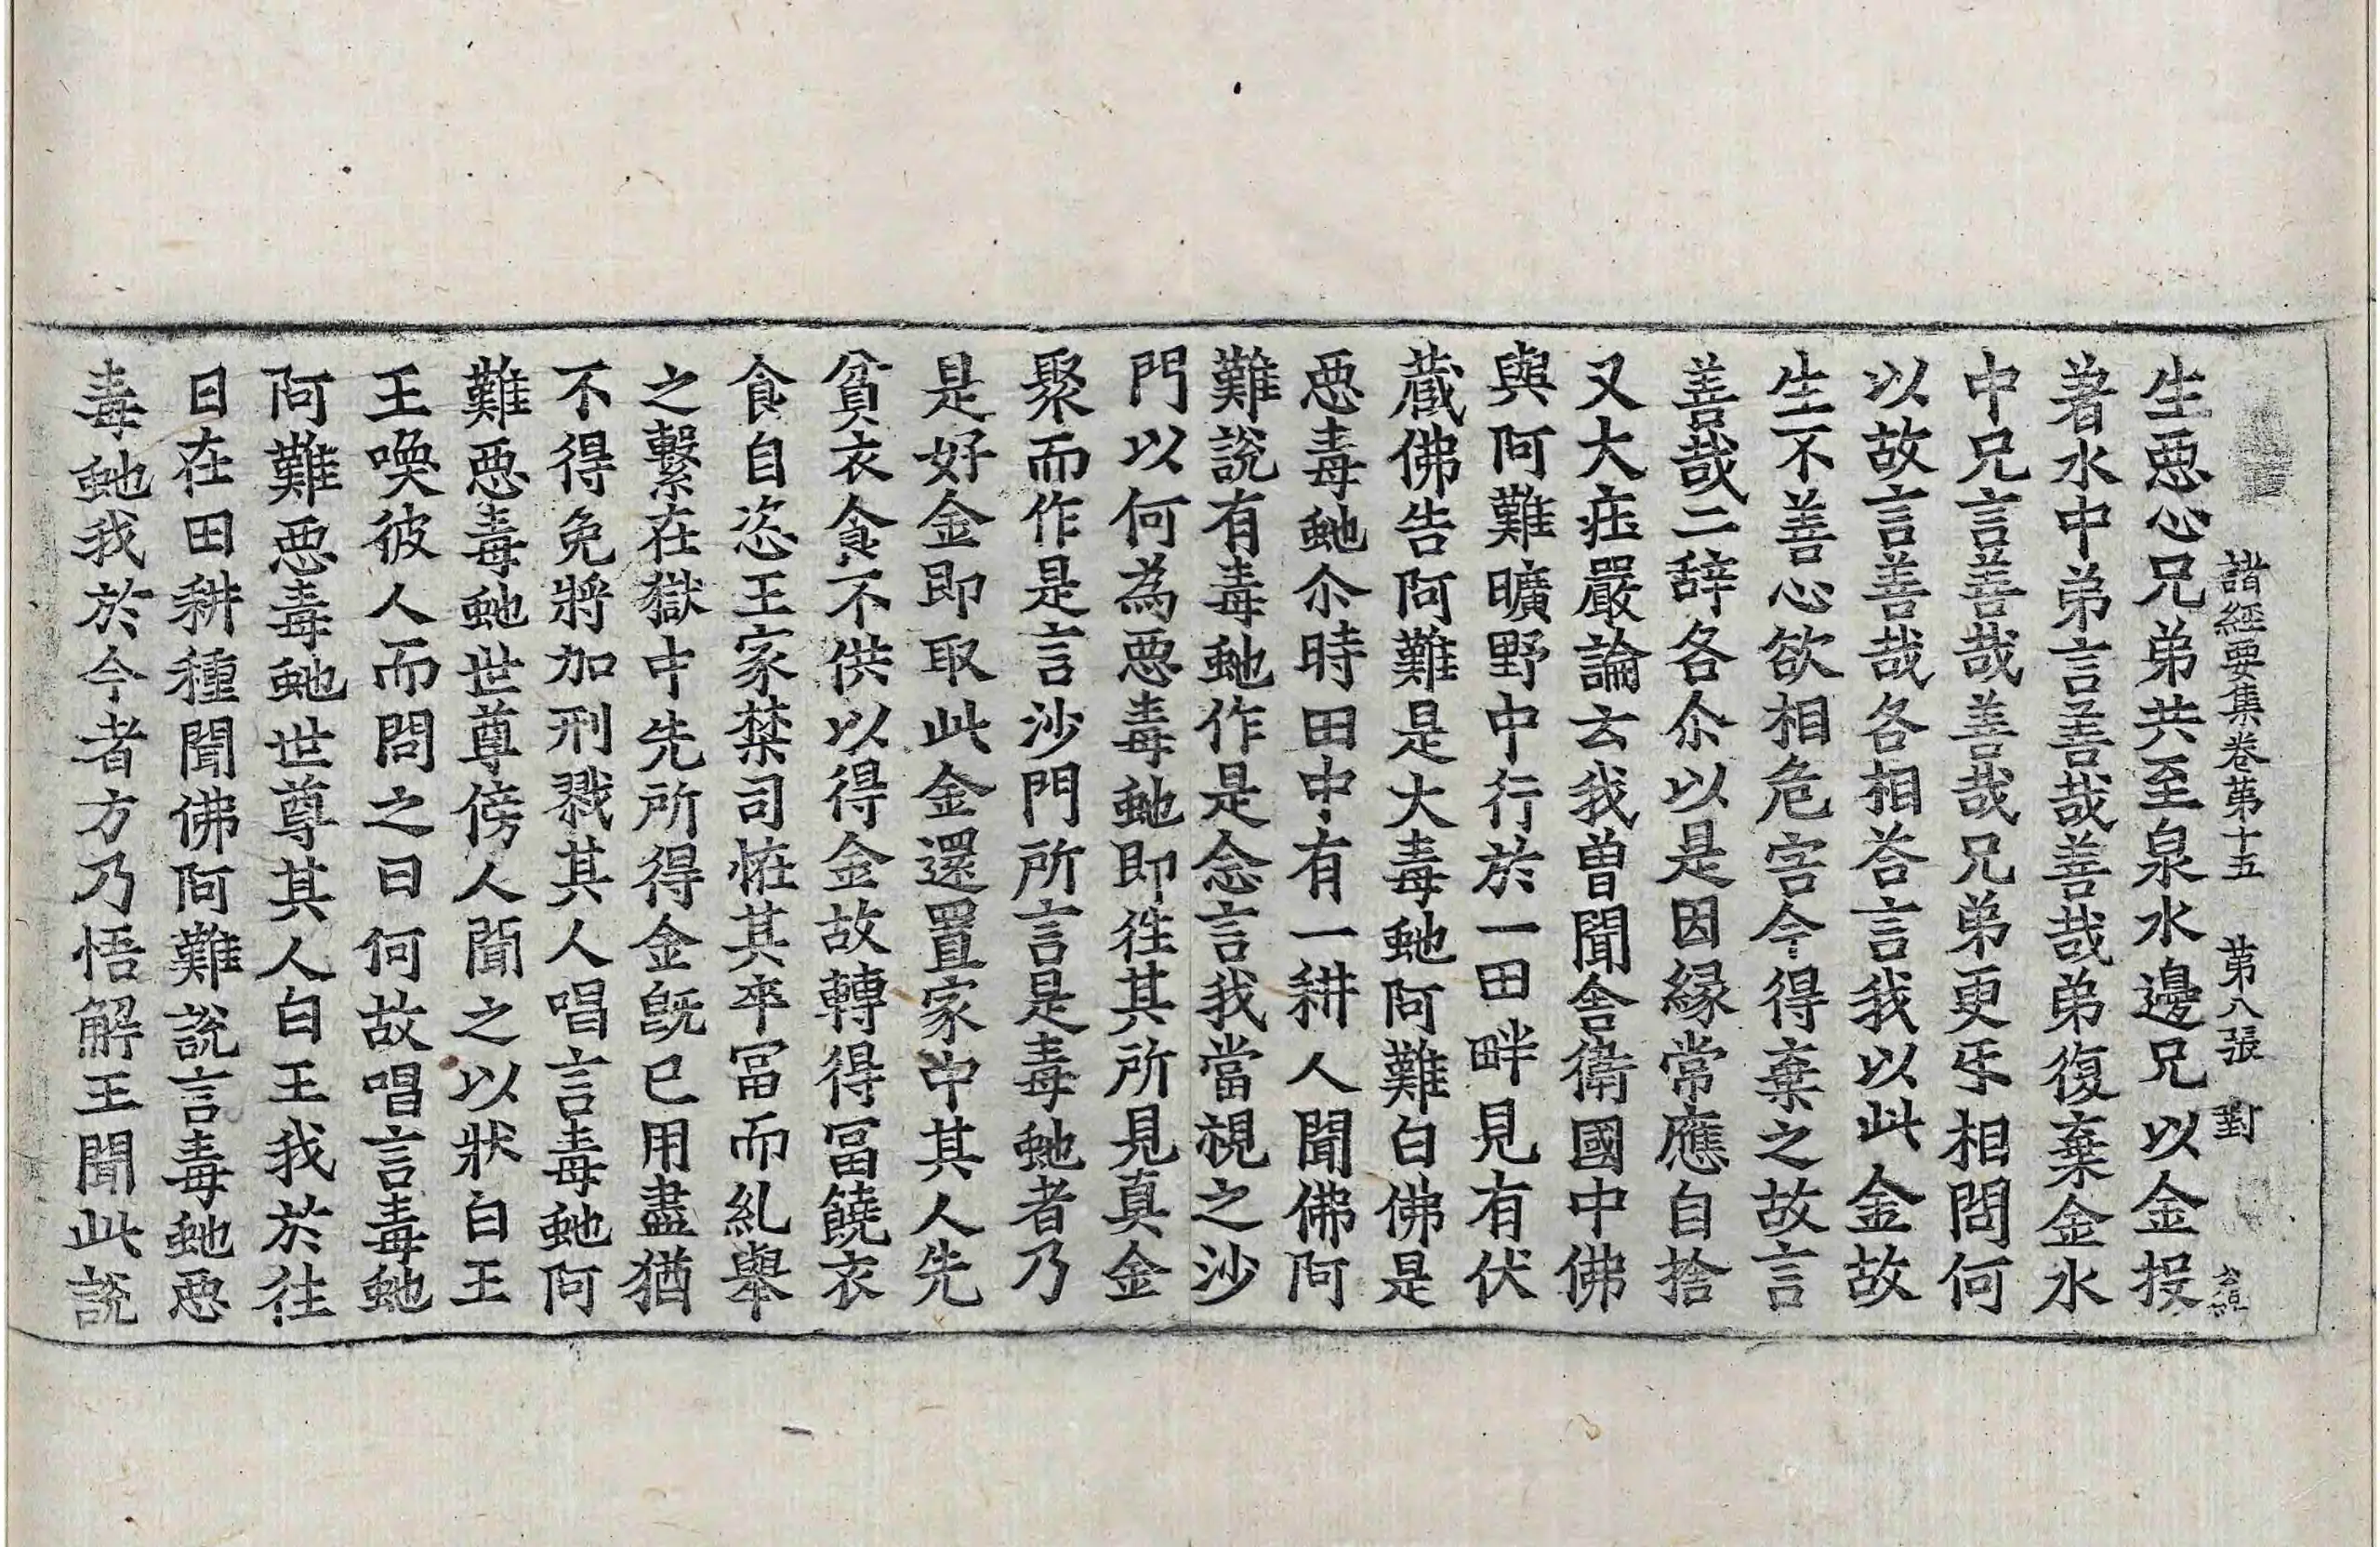 諸經要集卷苐十五　苐八張　對
生惡心兄弟共至泉水邊兄以金投
著水中弟言善哉善哉弟復棄金水
中兄言善哉善哉兄弟更㸦相問何
以故言善哉各相荅言我以此金故
生不善心欲相危害今得棄之故言
善哉二辞各尒以是因緣常應自捨
又大疘嚴論云我曾聞舍衛國中佛
與阿難曠野中行於一田畔見有伏
蔵佛告阿難是大毒虵阿難白佛是
惡毒虵尒時田中有一耕人聞佛阿
難說有毒虵作是念言我當視之沙
門以何為惡毒虵即徃其所見真金
聚而作是言沙門所言是毒虵者乃
是好金即取此金還置家中其人先
貧衣食不供以得金故轉得冨饒衣
食自恣王家禁司恠其卒冨而糺舉
之繫在獄中先所得金旣已用盡猶
不得免將加刑戮其人唱言毒虵阿
難惡毒虵世尊傍人聞之以狀白王
王喚彼人而問之曰何故唱言毒虵
阿難惡毒虵世尊其人白王我於往
日在田耕種聞佛阿難說言毒虵惡
毒虵我於今者方乃悟解王聞此說